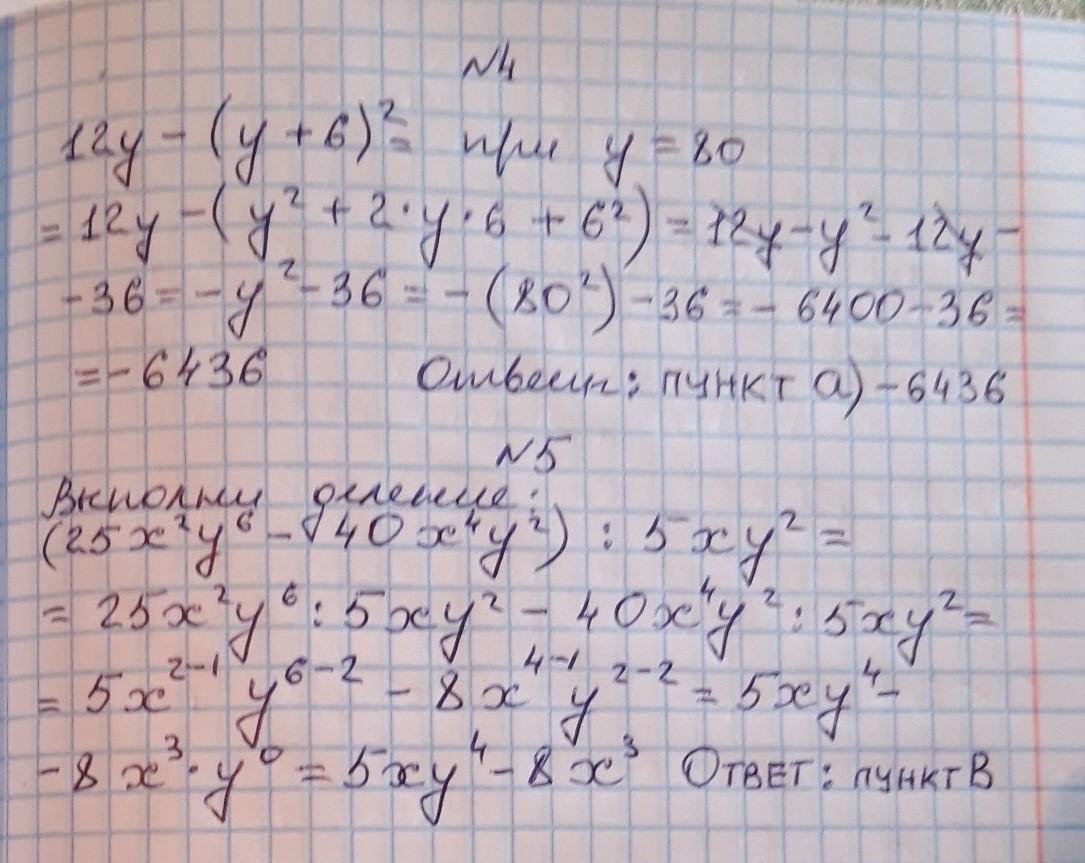 N4
12y - (y + 6)² = при y = 80
= 12y - (y² + 2·y·6 + 6²) = 12y - y² - 12y -
- 36 = - y² - 36 = - (80²) - 36 = - 6400 - 36 =
= - 6436 Ответ: пункт а) - 6436
N5
Выполни деление:
(25x²y⁶ - 40x⁴y²) : 5xy² =
= 25x²y⁶ : 5xy² - 40x⁴y² : 5xy² =
= 5x²⁻¹ y⁶⁻² - 8x⁴⁻¹ y²⁻² = 5xy⁴ -
- 8x³·y⁰ = 5xy⁴ - 8x³ Ответ: пункт В